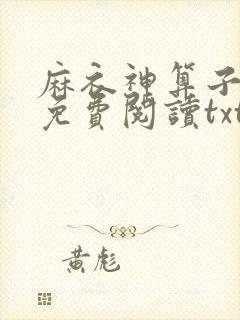 麻衣神算子
免費閱讀txt
黃彪